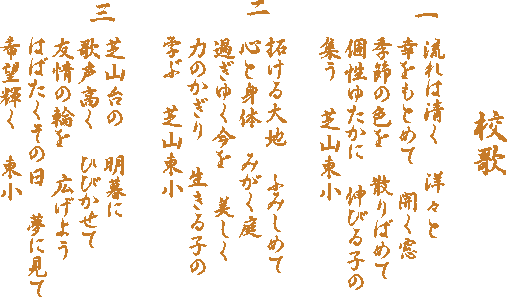 校歌
一
流れは清く 洋々と
幸をもとめて 開く窓
季節の色を 散りばめて
個性ゆたかに 伸びる子の
集う 芝山東小
二
拓ける大地 ふみしめて
心と身体 みがく庭
過ぎゆく今を 美しく
力のかぎり 生きる子の
学ぶ 芝山東小
三
芝山台の 明暮に
歌声高く ひびかせて
友情の輪を 広げよう
はばたくその日 夢に見て
希望輝く 東小